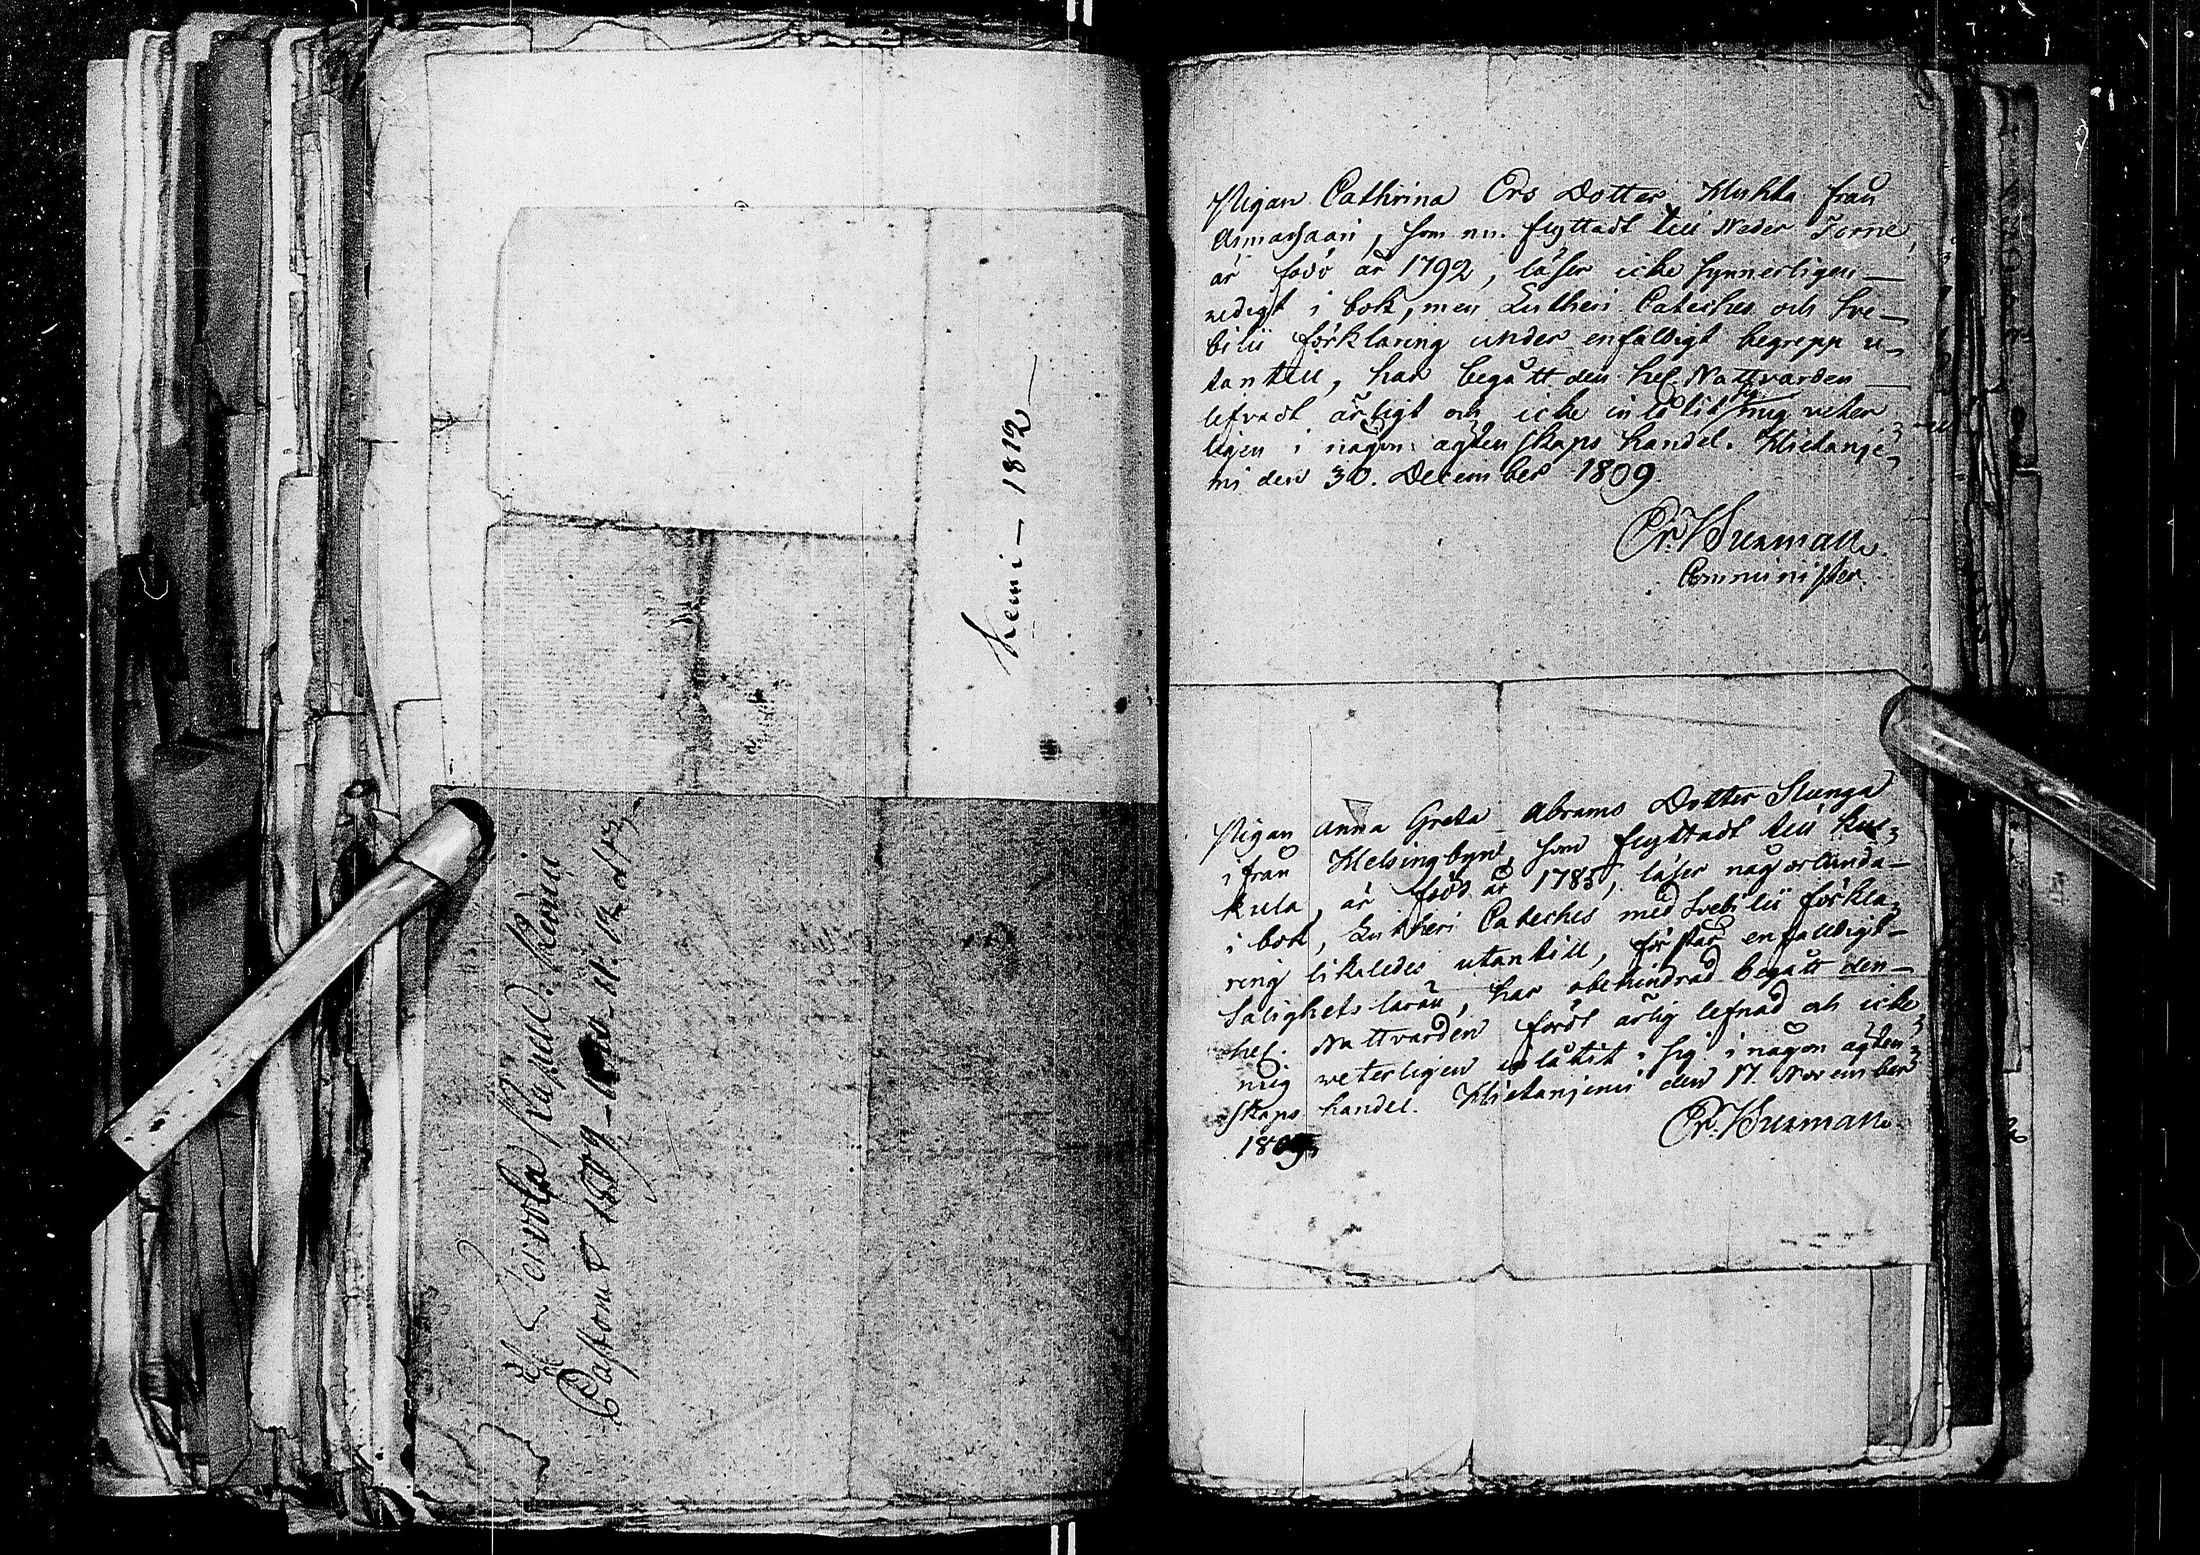 Kemi – 1812
Tervola Kapell
Pastorn
1809
Pigan Cathrina Ers Dotter Huhta från
Armasaari, som nu flyttadt till Neder Torne,
är född år 1792, läser icke synnerligen
redigt i bok, men Lutheri Cateches och Sve-
bilii förklaring under enfaldigt begrepp u-
tantill, har begått den hel. Nattvarden
lefvadt ärligt och icke inlåtit sig mig veter
ligen i någon ägtenskaps handel. Hietanje-
mi den 30. December 1809.
Er. Burman.
Comminister.
Pigan Anna Greta Abrams Dotter Slunga
ifrån Helsingbyn som flyttadt till Kuc-
kula, är född år 1785, läser någorlunda
i bok, Lutheri Cateches med Svebilii förkla-
ring likaledes utantill, förstår enfalldigt
Salighets läran, har obehindrad begått den
hel. Nattvarden fördt ärlig lefnad och icke
mig veterligen inlåtit sig i någon ägten-
skaps handel. Hietanjemi den 17. November
1809
Er. Burman.